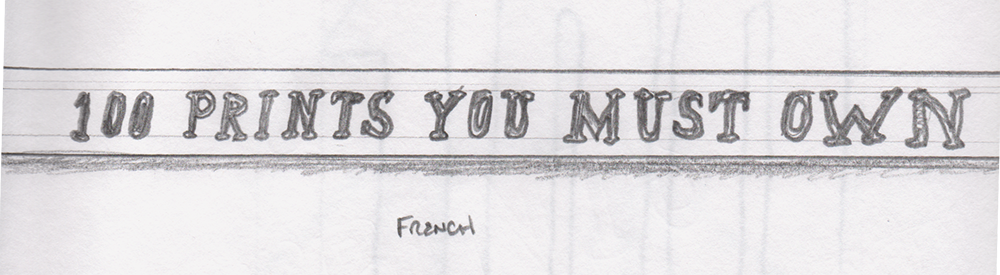 100 PRINTS YOU MUST OWN
FRENCH